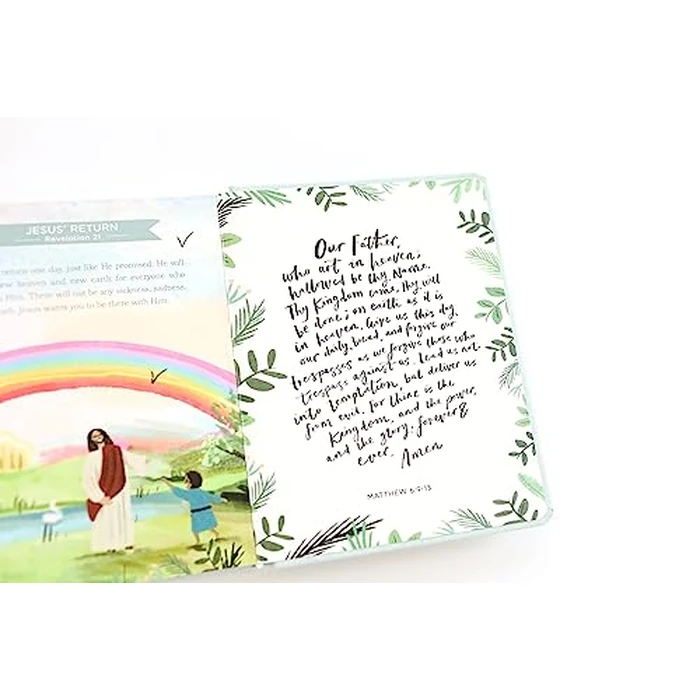 JESUS' RETURN
Revelation 21
return one day, just like He promised. He will
new heaven and new earth for everyone who
Him. There will not be any sickness, sadness,
Jesus wants you to be there with Him.
Our Father,
who art in heaven,
hallowed be thy Name.
Thy Kingdom come, thy will
be done, on earth as it is
in heaven. Give us this day,
our daily bread, and forgive our
trespasses as we forgive those who
trespass against us. Lead us not
into temptation, but deliver us
from evil. For thine is the
Kingdom, and the power,
and the glory, forever &
ever. Amen
MATTHEW 6:9-13